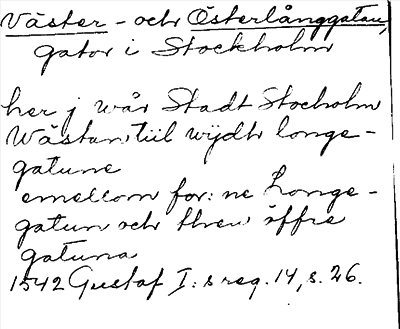 Väster- och Österlånggatan,
gator i Stockholm
her j wår Stadt Stocholm
Wästan tiil wijdh longe-
gatune
emellom for:ne Longe-
gatun och then öffre
gatuna
1542 Gustaf I:s reg. 14, s. 26.